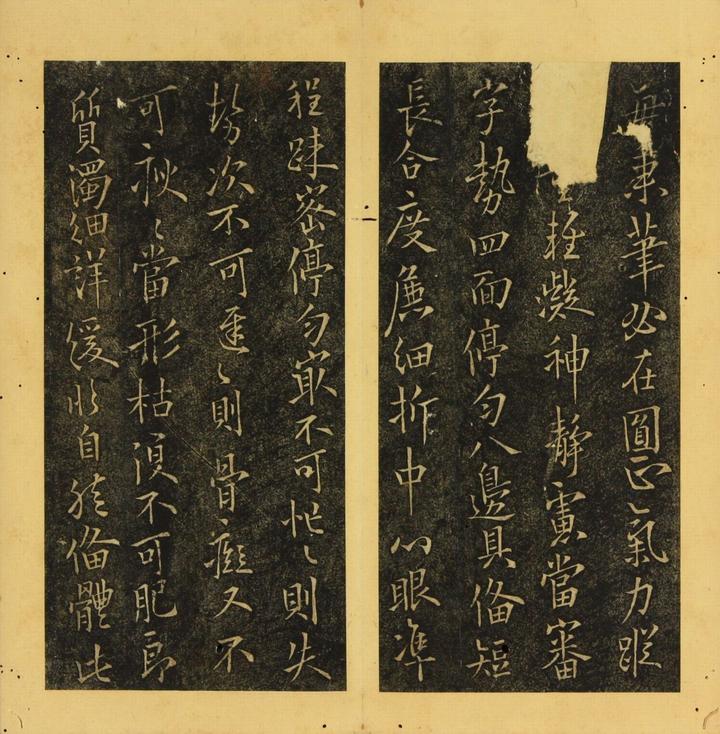 每秉筆必在圓正〻氣力蹤
輕凝神靜慮當審
字勢四面停勻八邊具備短
長合度麁細折中心眼準
程疎密停勻最不可忙〻則失
勢次不可遲〻則骨癡又不
可瘦〻當形枯復不可肥即
質濁細詳緩臨自然備體此